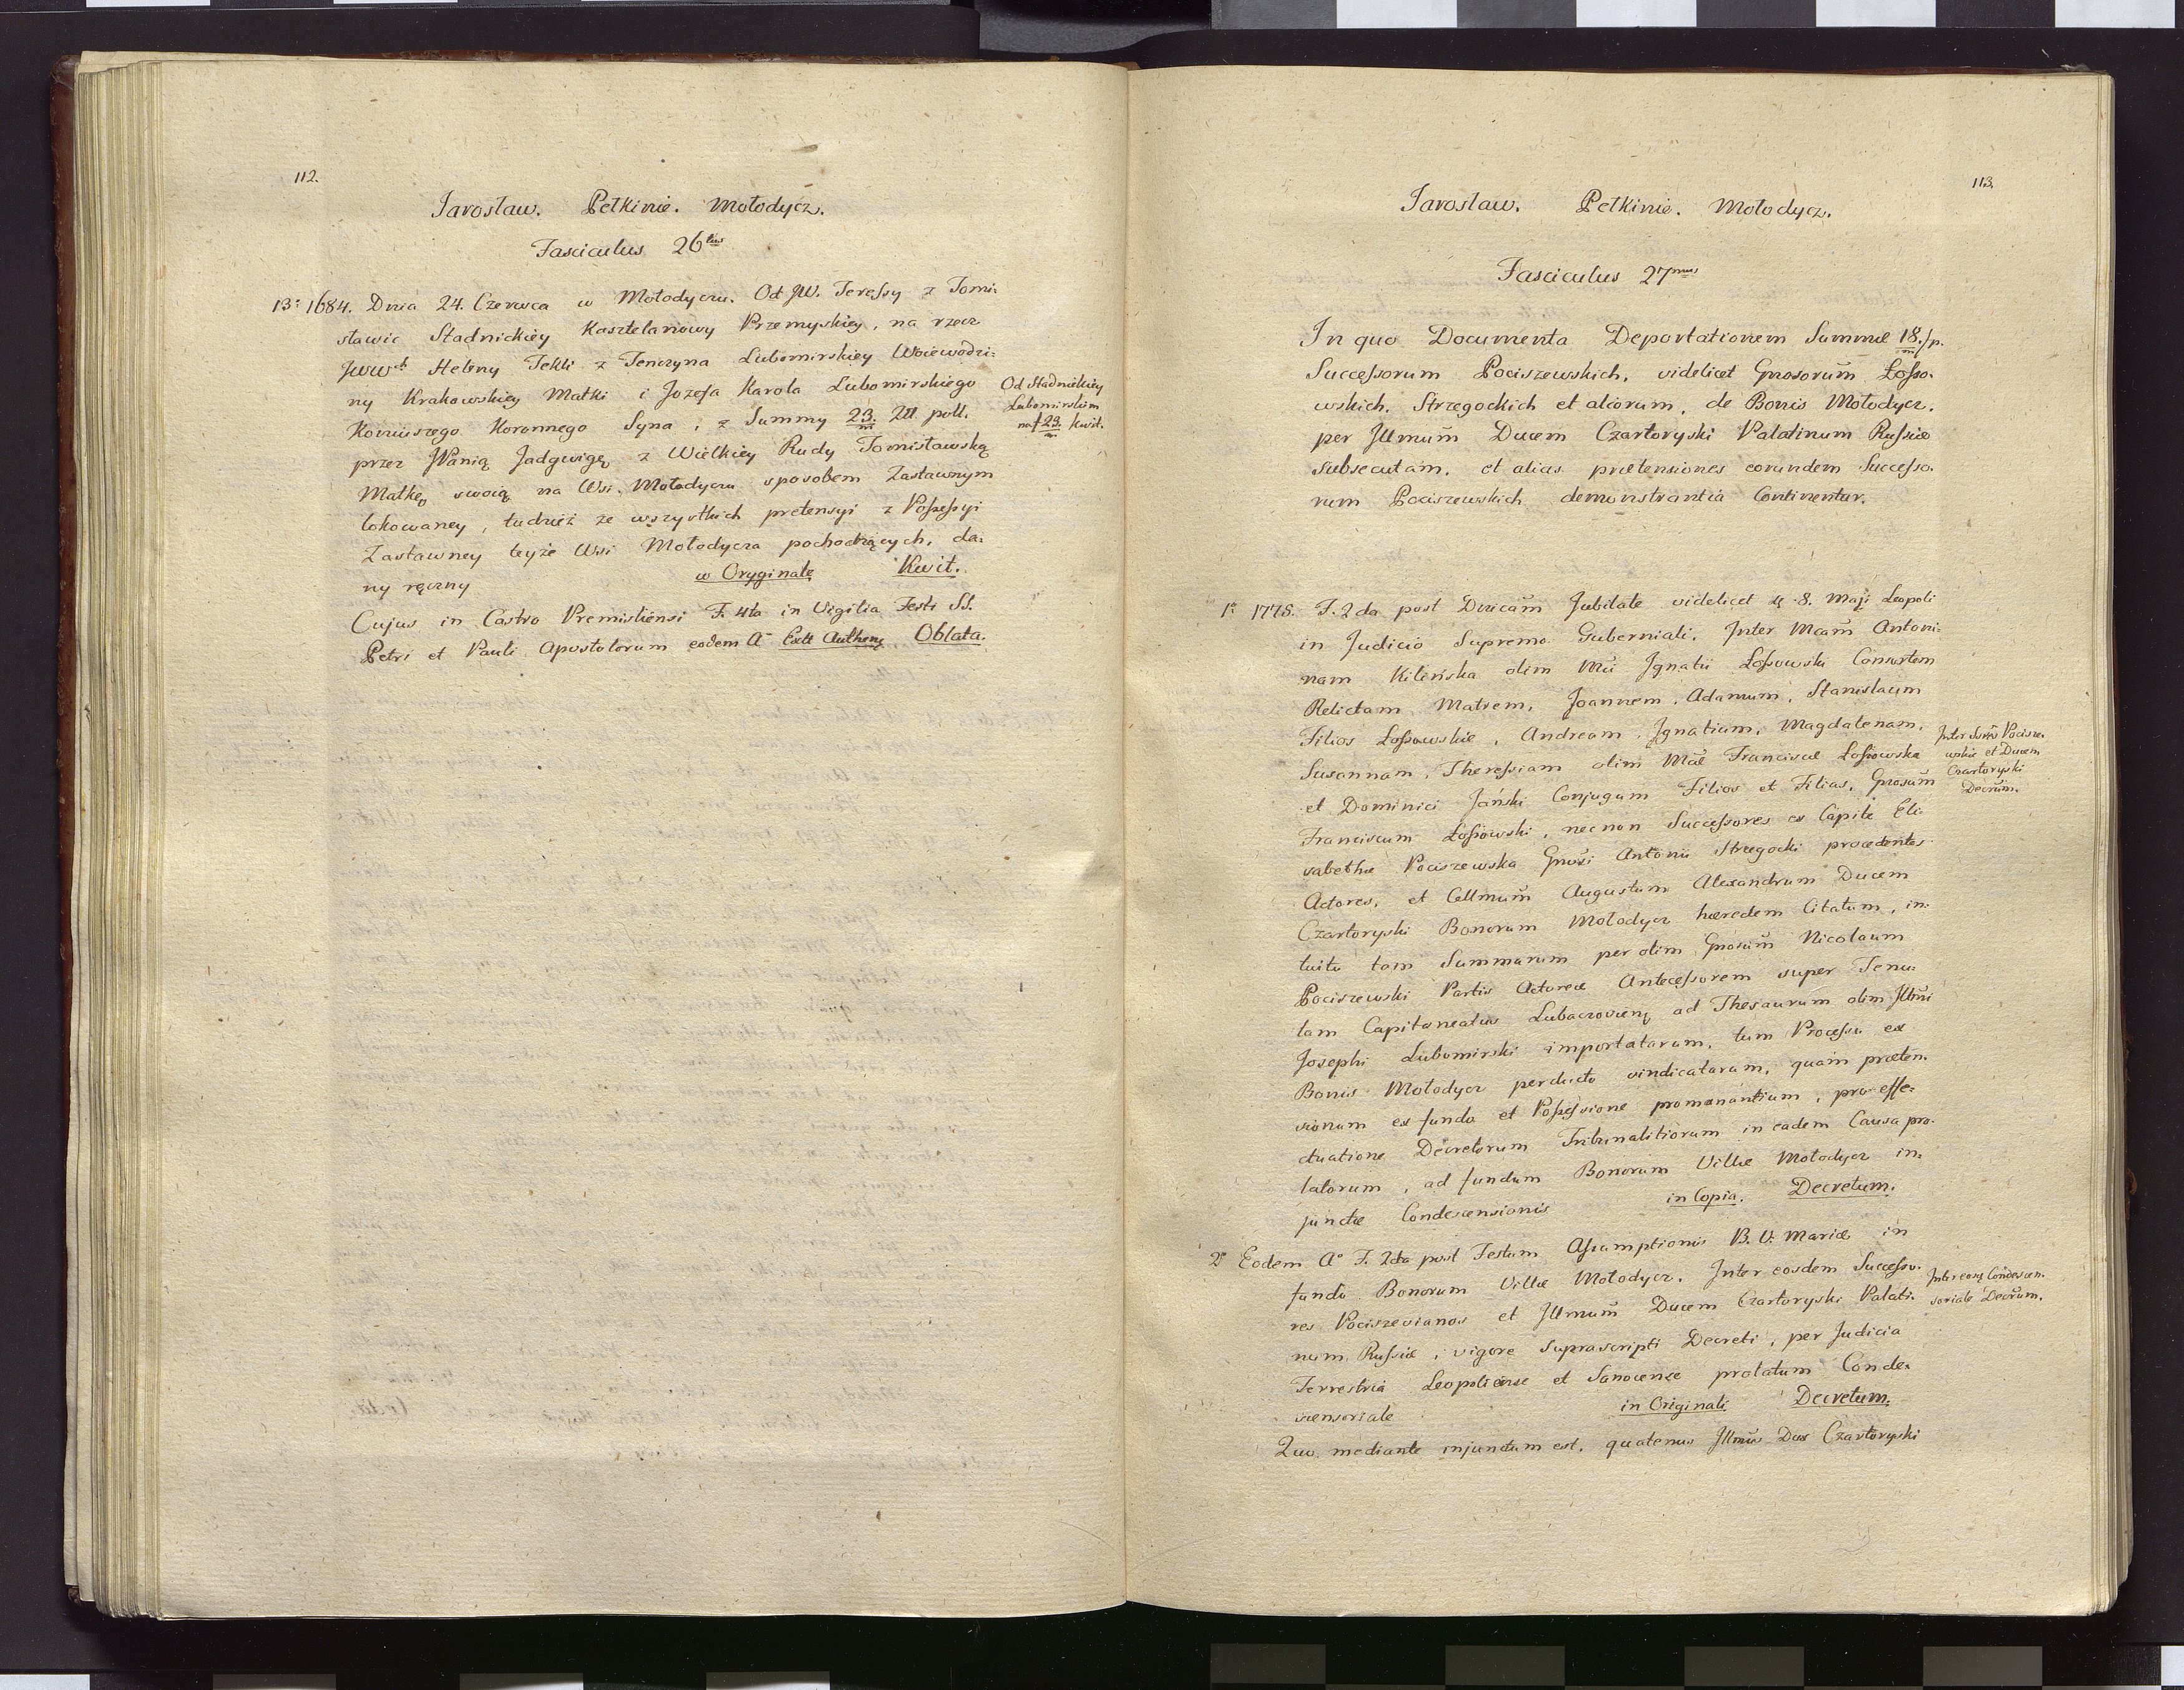 112.
Jarosław. Pełkinie. Mołodycz.
Fasciculus 26tus
13o 1684. Dnia 24. Czerwca w Mołodyczu. Od JW. Teressy z Tomi-
sławic Stadnickiey Kasztelanowy Przemyskiey, na rzecz
JWWch Heleny Tekli z Tenczyna Lubomirskiey Woiewodzi-
ny Krakowskiey Matki i Jozefa Karola Lubomirskiego
Koniuszego Koronnego Syna, z Summy 23. Zll. poll.
m
przez JPanią Jadgwigę z Wielkiey Rudy Tomisławską
Matkę swoią na Wsi Mołodyczu sposobem Zastawnym
lokowaney, tudzież ze wszystkich pretensyi z Possessyi
Zastawney teyże Wsi Mołodycza pochodzących, da-
ny ręczny w Oryginale Kwit.
Cujus in Castro Premisliensi F. 4ta in Vigilia Festi SS.
Petri et Pauli Apostolorum eodem Ao Extt Authenq Oblata.
Od Stadnickiey
Lubomirskim
na f 23. kwit.
m
113.
Jarosław. Pełkinie. Mołodycz.
Fasciculus 27mus
In quo Documenta Deportationem Summæ 18. fp.
m
Successorum Pociszewskich, videlicet Gnosorum Łosso-
wskich, Strzegockich et aliorum, de Bonis Mołodycz,
per Jllmum Ducem Czartoryski Palatinum Russiæ
subsecutam, et alias prætensiones eorundem Successo-
rum Pociszewskich demonstrantia Continentur.
1o 1775. F. 2da post Dnicam Jubilate videlicet 8. Maji Leopoli
in Judicio Supremo Guberniali. Inter Mcam Antoni-
nam Kilińska olim Mci Jgnatii Łossowski Consortem
Relictam Matrem, Joannem, Adamum, Stanislaum
Filios Łossowskie, Andream, Jgnatium, Magdalenam,
Susannam, Theressiam olim Mcæ Franciscæ Łossowska
et Dominici Jański Conjugum Filios et Filias, Gnosum
Franciscum Łossowski, necnon Successores ex Capite Eli-
sabethæ Pociszewska Gnosi Antonii Strzegocki procedentes
Actores, et Cellmum Augustum Alexandrum Ducem
Czartoryski Bonorum Mołodycz hæredem Citatum, in-
tuitu tam Summarum per olim Gnosum Nicolaum
Pociszewski Partis Actoreæ Antecessorem super Tenu-
tam Capitaneatus Lubaczovienq ad Thesaurum olim Jllmi
Josephi Lubomirski importatarum, tum Processu ex
Bonis Mołodycz perducto vindicatarum, quam præten-
sionum ex fundo et Possessione promanantium, pro effe-
ctuatione Decretorum Tribunalitiorum in eadem Causa pro-
latorum, ad fundum Bonorum Villæ Mołodycz in-
junctæ Condescensionis in Copia. Decretum.
Inter Sores Pocisze-
wskie et Ducem
Czartoryski
Decrum.
2o Eodem Ao F. 2da post Festum Assumptionis B. V. Mariæ in
fundo Bonorum Villæ Mołodycz. Inter eosdem Successo-
res Pociszevianos et Jllmum Ducem Czartoryski Palati-
num Russiæ, vigore Suprascripti Decreti, per Judicia
Terrestria Leopoliense et Sanocense prolatum Conde-
scensoriale in Originali Decretum.
Inter eosq Condescen-
soriale Decrum.
Quo mediante injunctum est, quatenus Jllmus Dux Czartoryski